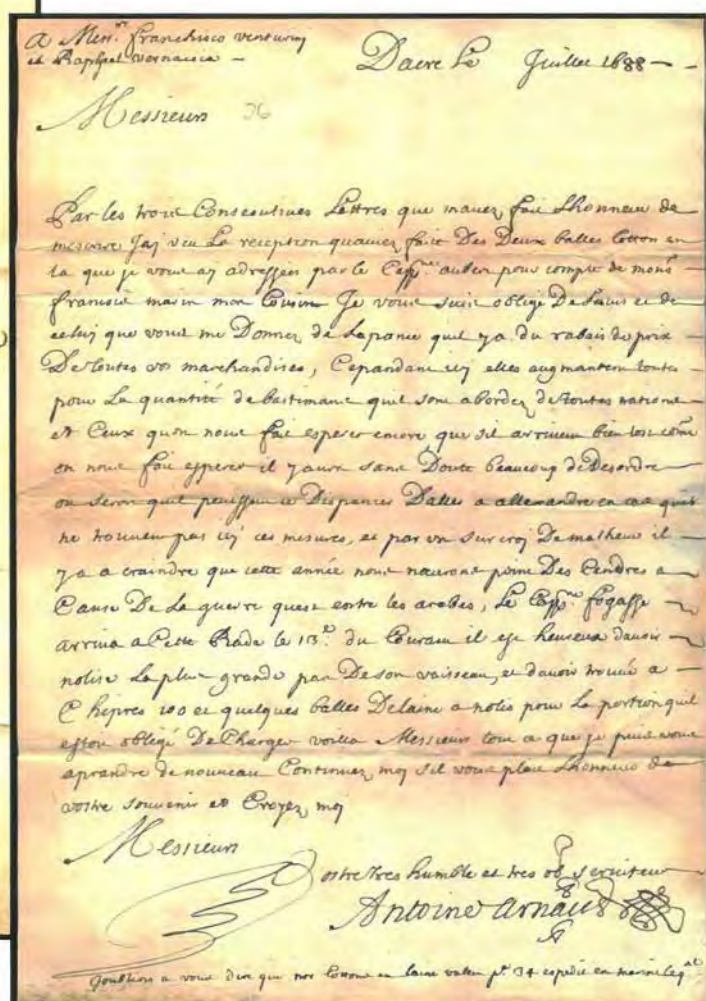 A Mess.rs franchisco venturin
et Raphael vernaccia –
Dacre Le Juillet 1688 – –
Messieurs 36
Par les trois Consecutives Lettres que mavez fait Lhonneur de
mescrire Jay veu La reception quaviez fait Des Deux balles Cotton en
la que je vous ay adressées par le Capp.ne aubin pour compte de mons.r
francois marin mon Cousin Je vous suis obligé De Lavis et de
celuy que vous me Donnez de qui y a du rabais du prix –
De toutes vos marchandises, Cepandant icy elles augmantent toutes
pour La quantité de bastimans quil sont abordez de toutes nations
et Ceux quon nous fait esperer encore que sil arrivent bien tost come
on nous fait esperer il y aura sans Doute beaucoup de Desordre
ou seront quil puissent ce Dispancer Daller a allexandre en cas quils
ne trouvent pas icy ces mesures, et par un surcroj De malheur il –
y a a craindre que cette année nous naurons point Des Cendres a
Cause De La guerre quest entre les arabes, Le Capp.ne fogasse
arriva a Cette Rade le 13.e du Courant il est heureux davoir –
nolisé La plus grande part De son vaisseau, et davoir trouvé a –
Chipres 100 et quelques balles De laine a nolis pour La portion quil
estoit obligé De Charger voilla Messieurs tout ce que je puis vous
aprandre de nouveau Continuez moy sil vous plait Lhonneur de
vostre souvenir et Croyez moy
Messieurs
Vostre tres humble et tres ob.t serviteur
Antoine arnaud
Joubliois a vous dire que nos Cottons en laine valent p.s 34 expedié en